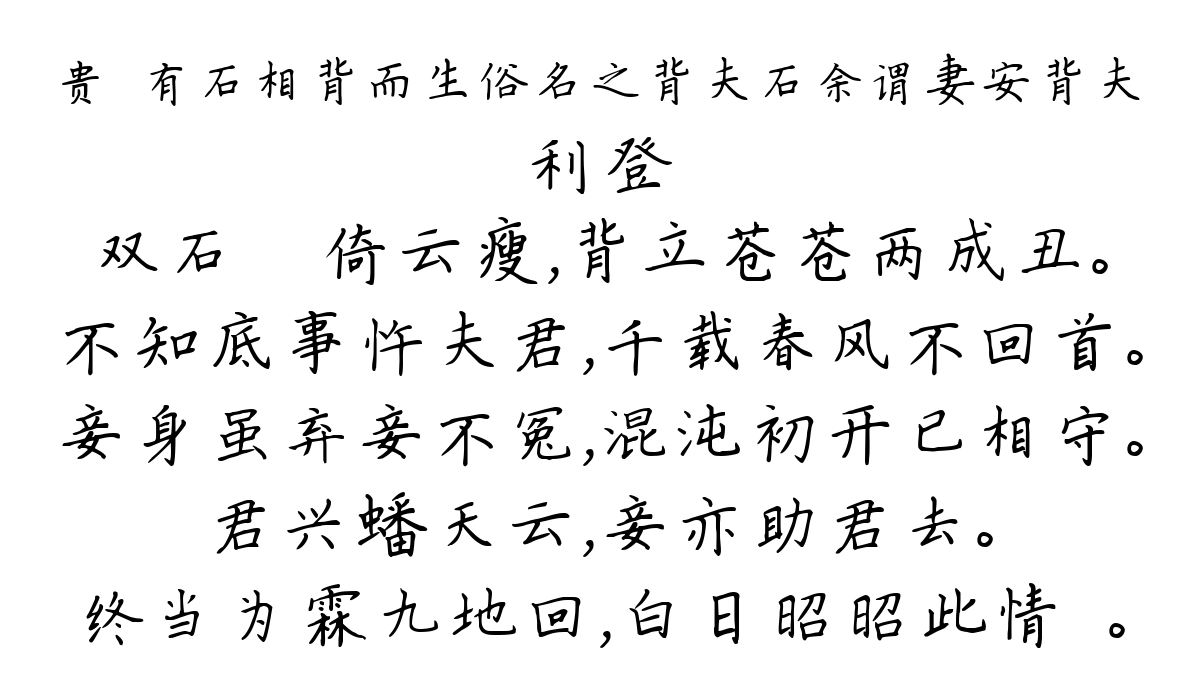 贵 有石相背而生俗名之背夫石余谓妻安背夫
利登
双石 倚云瘦,背立苍苍两成丑。
不知底事忤夫君,千载春风不回首。
妾身虽弃妾不冤,混沌初开已相守。
君兴蟠天云,妾亦助君去。
终当为霖九地回,白日昭昭此情 。